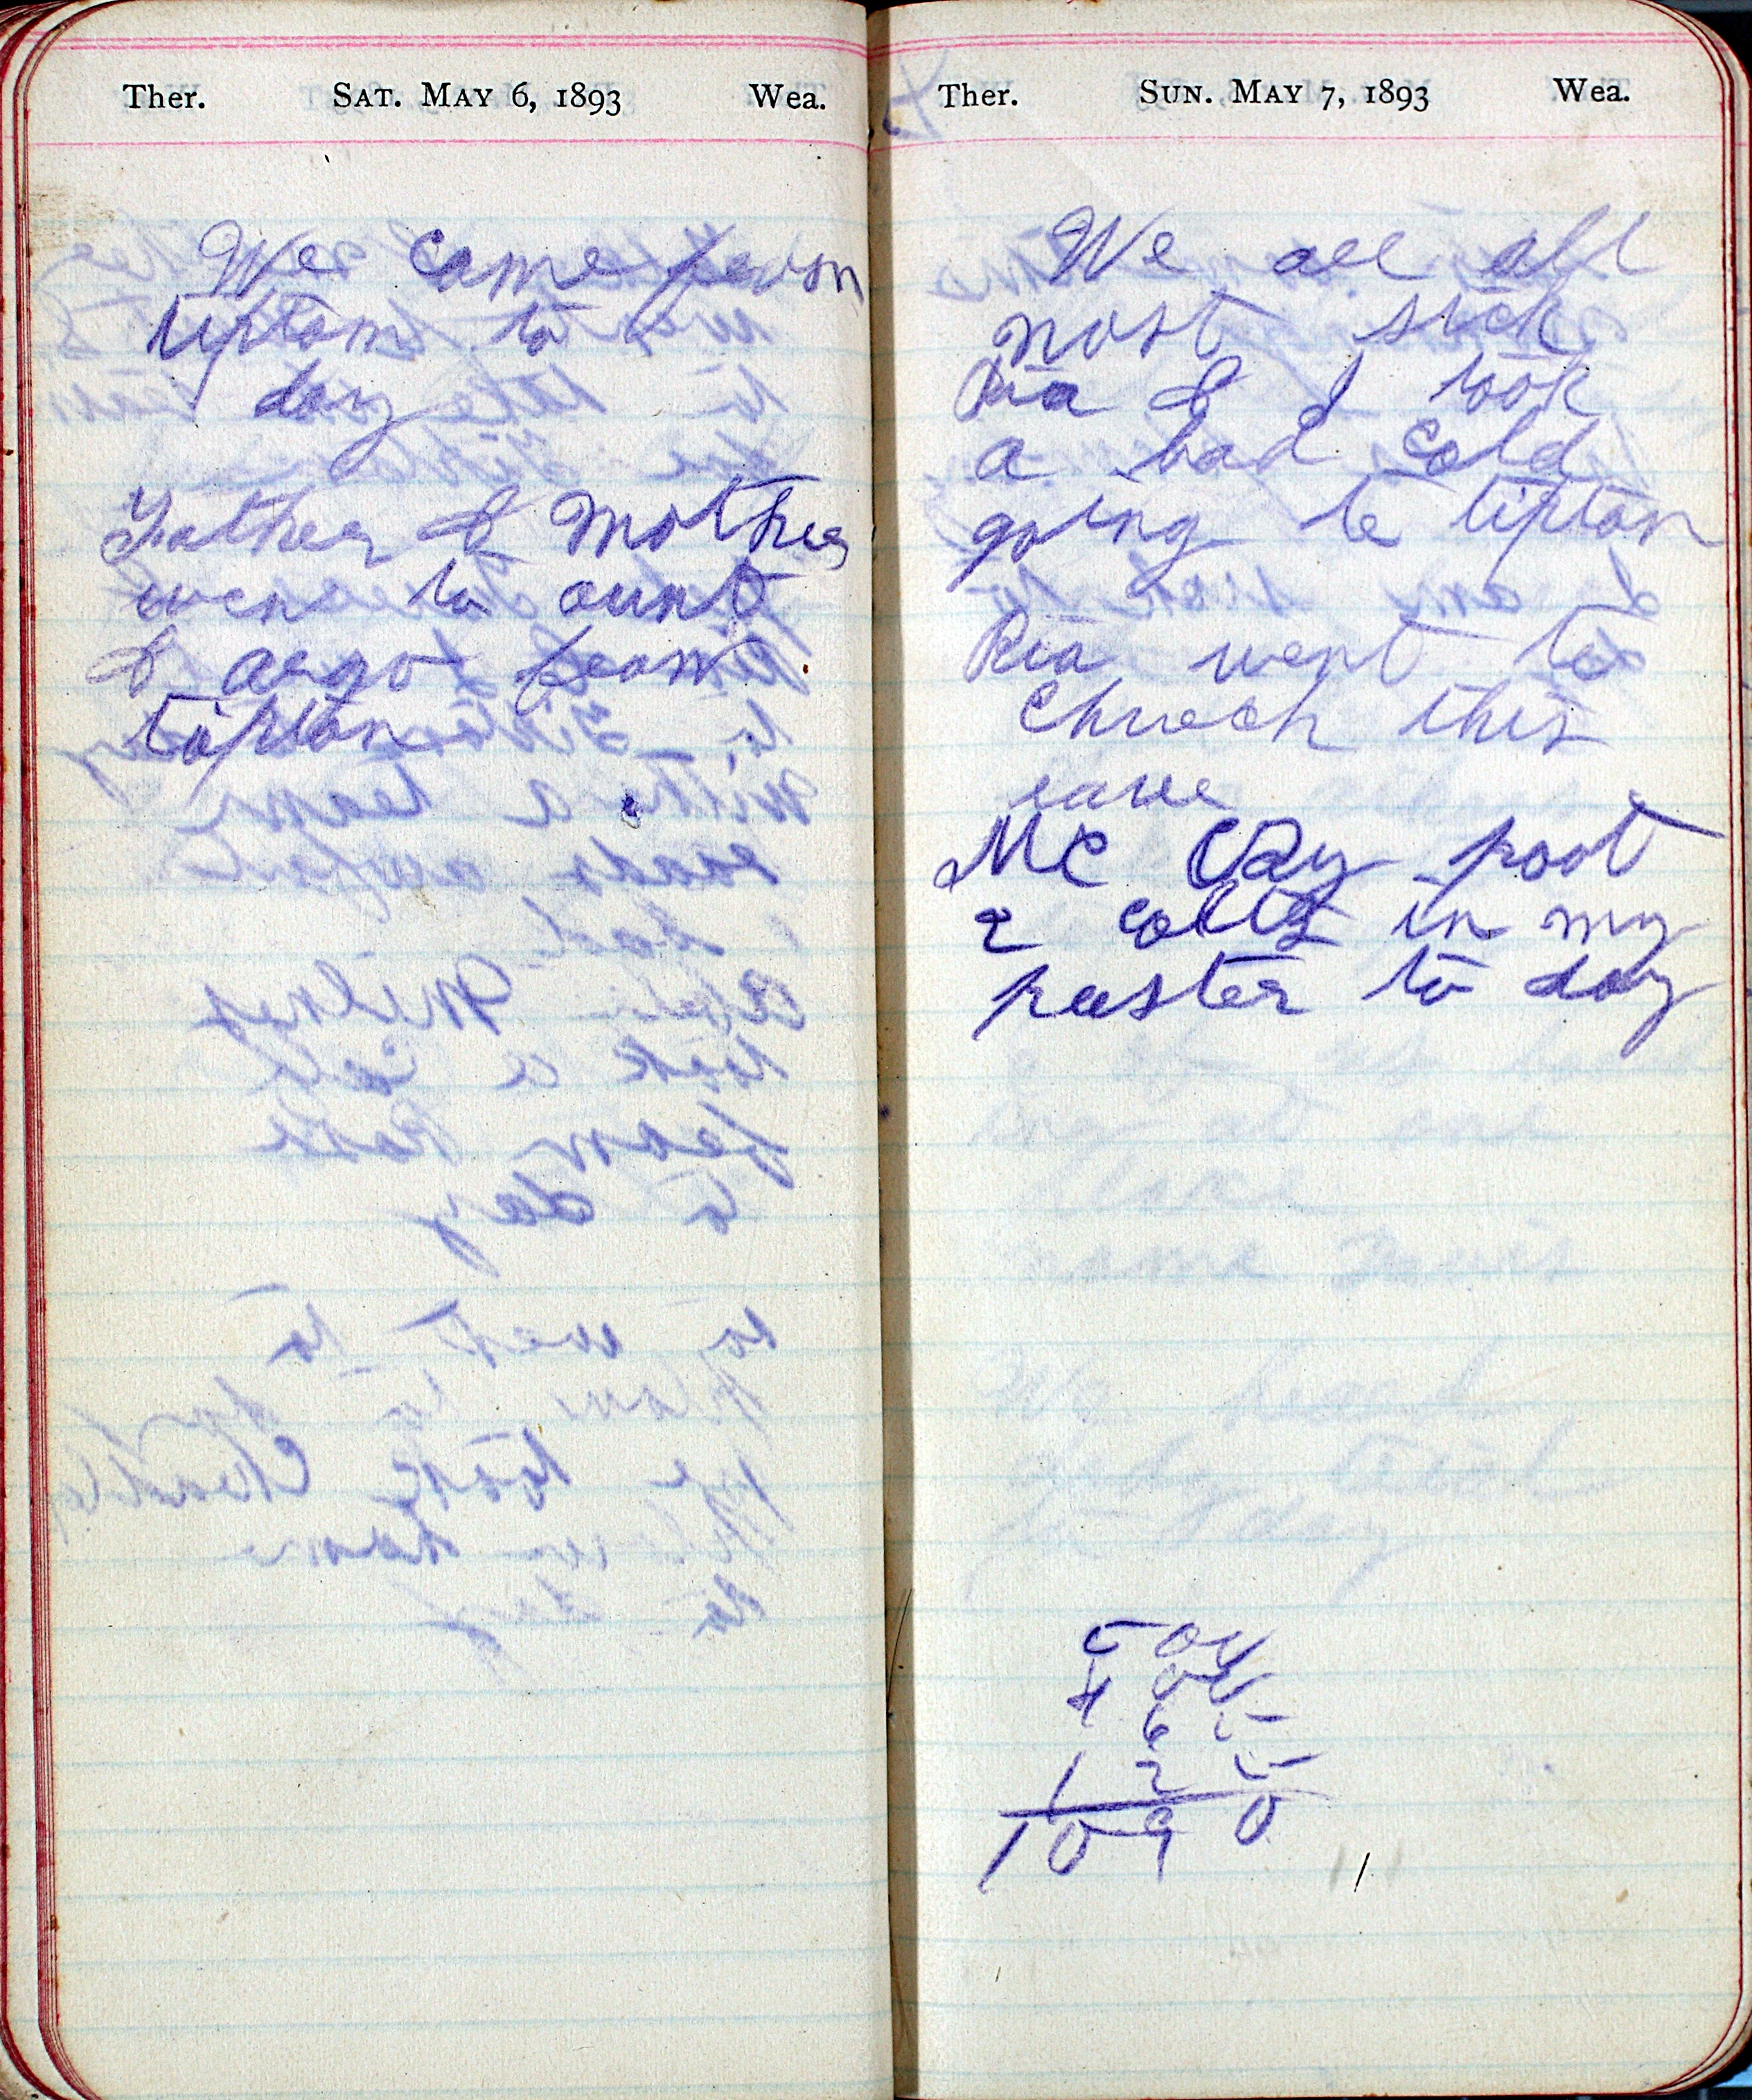 Ther. SAT. MAY 6, 1893 Wea.
We came from
tipton to
day
Father & Mother
wen to aunt
& argo from
tipton
Ther. SUN. MAY 7, 1893 Wea.
We are all
most sick
Ria & I took
a bad cold
going to tipton
Ria went to
Chruch this
eave
Mc Coy poot
2 colts in my
paster to day
500
400
65
125
1090